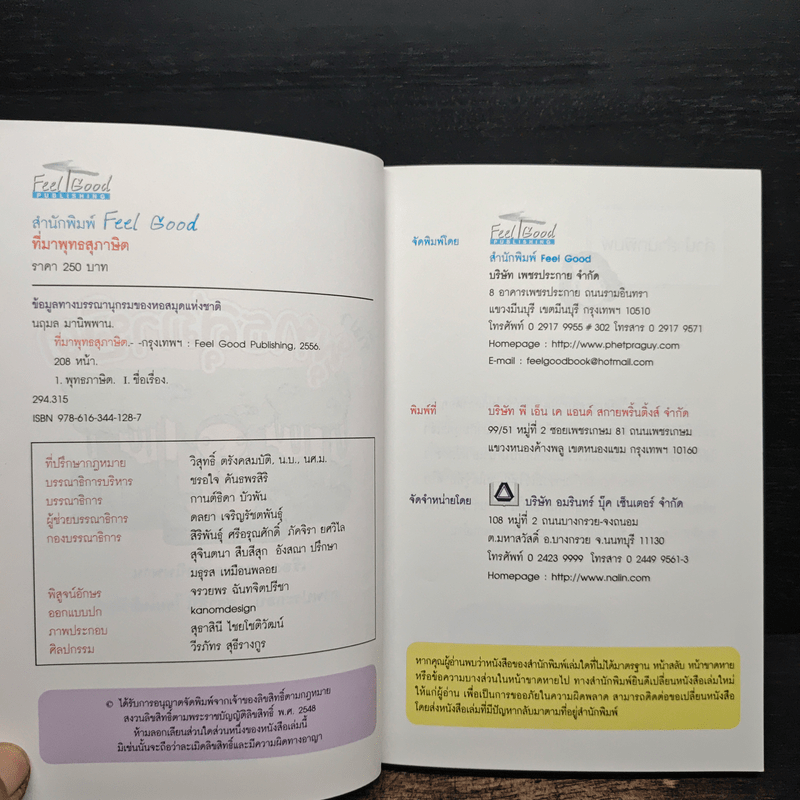 Feel Good
PUBLISHING
สำนักพิมพ์ Feel Good
ที่มาพุทธสุภาษิต
ราคา 250 บาท
ข้อมูลทางบรรณานุกรมของหอสมุดแห่งชาติ
นฤมล มานิพพาน.
ที่มาพุทธสุภาษิต.- -กรุงเทพฯ : Feel Good Publishing, 2556.
208 หน้า.
1. พุทธภาษิต. I. ชื่อเรื่อง.
294.315
ISBN 978-616-344-128-7
ที่ปรึกษากฎหมาย วิสุทธิ์ ตรังคสมบัติ, น.บ., นศ.ม.
บรรณาธิการบริหาร ชรอใจ คันธพรสิริ
บรรณาธิการ กานต์ธิดา บัวพัน
ผู้ช่วยบรรณาธิการ ดลยา เจริญรัชตพันธุ์
กองบรรณาธิการ สิริพันธุ์ ศรีอรุณศักดิ์ ภัคจิรา ยศวิไล
สุจินตนา สืบสีสุก อังสณา ปรึกษา
มธุรส เหมือนพลอย
พิสูจน์อักษร จรวยพร ฉันทจิตปรีชา
ออกแบบปก kanomdesign
ภาพประกอบ สุธาสินี ไชยโชติวัฒน์
ศิลปกรรม วีรภัทร สุธีรางกูร
© ได้รับการอนุญาตจัดพิมพ์จากเจ้าของลิขสิทธิ์ตามกฎหมาย
สงวนลิขสิทธิ์ตามพระราชบัญญัติลิขสิทธิ์ พ.ศ. 2548
ห้ามลอกเลียนส่วนใดส่วนหนึ่งของหนังสือเล่มนี้
มิเช่นนั้นจะถือว่าละเมิดลิขสิทธิ์และมีความผิดทางอาญา
Feel Good
PUBLISHING
จัดพิมพ์โดย สำนักพิมพ์ Feel Good
บริษัท เพชรประกาย จำกัด
8 อาคารเพชรประกาย ถนนรามอินทรา
แขวงมีนบุรี เขตมีนบุรี กรุงเทพฯ 10510
โทรศัพท์ 0 2917 9955 # 302 โทรสาร 0 2917 9571
Homepage : http://www.phetpraguy.com
E-mail : feelgoodbook@hotmail.com
พิมพ์ที่ บริษัท พี เอ็น เค แอนด์ สกายพริ้นติ้งส์ จำกัด
99/51 หมู่ที่ 2 ซอยเพชรเกษม 81 ถนนเพชรเกษม
แขวงหนองค้างพลู เขตหนองแขม กรุงเทพฯ 10160
จัดจำหน่ายโดย บริษัท อมรินทร์ บุ๊ค เซ็นเตอร์ จำกัด
108 หมู่ที่ 2 ถนนบางกรวย-จงถนอม
ต.มหาสวัสดิ์ อ.บางกรวย จ.นนทบุรี 11130
โทรศัพท์ 0 2423 9999 โทรสาร 0 2449 9561-3
Homepage : http://www.naiin.com
หากคุณผู้อ่านพบว่าหนังสือของสำนักพิมพ์เล่มใดที่ไม่ได้มาตรฐาน หน้าสลับ หน้าขาดหาย
หรือข้อความบางส่วนในหน้าขาดหายไป ทางสำนักพิมพ์ยินดีเปลี่ยนหนังสือเล่มใหม่
ให้แก่ผู้อ่าน เพื่อเป็นการขออภัยในความผิดพลาด สามารถติดต่อขอเปลี่ยนหนังสือ
โดยส่งหนังสือเล่มที่มีปัญหากลับมาตามที่อยู่สำนักพิมพ์